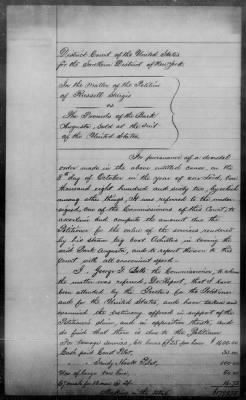 District Court of the United States
for the Southern District of New York
In the Matter of the Petition
of Russell Sturgis
vs
The Proceeds of the Bark
Augusta, Sold at the suit
of the United States
In pursuance of a decretal
order made in the above entitled cause, on the
day of October in the year of our Lord, One
thousand eight hundred and sixty two, by which
among other things it was referred to the under-
signed, one of the Commissioners of this Court, to
ascertain and compute the amount due the
Petitioner for the value of the services rendered
by his steam tug boat in towing the
said Bark Augusta, and to report thereon to this
Court with all convenient speed.
I, George F. Betts the Commissioner, to whom
the matter was referred, Do Report, that I have
been attended by the Proctors for the Petitioner
and for the United States, and have taken and
examined the testimony offered in support of the
Petitioner's claim, and in opposition thereto, and
do find that there is due to the Petitioner
For towage services, hours @ $25 per hour
Cash paid Pilot,
" Sandy Hook Pilot,
Use of large